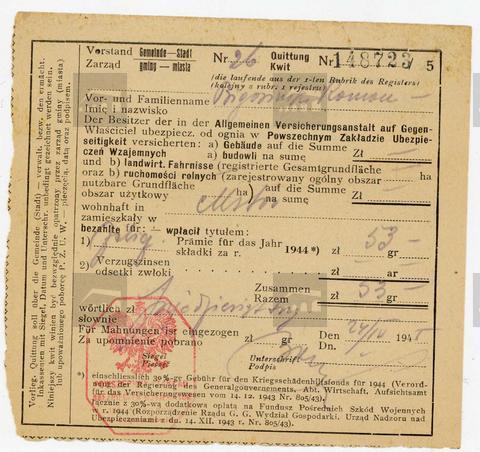 Vorstand Gemeinde—Stadt
Zarząd gminy — miasta
Nr. 26 Quittung
Kwit
Nr 148723 5
(die laufende aus der 1-ten Rubrik des Registers)
(kolejny z rubr. 1 rejestru)
Vor- und Familienname
Imię i nazwisko Roman
Der Besitzer der in der Allgemeinen Versicherungsanstalt auf Gegen-
Właściciel ubezpiecz. od ognia w Powszechnym Zakładzie Ubezpie-
seitigkeit versicherten: a) Gebäude auf die Summe
czeń Wzajemnych a) budowli na sumę Zł
und b) landwirt. Fahrnisse (registrierte Gesamtgrundfläche ha
i b) ruchomości rolnych (zarejestrowany ogólny obszar
nutzbare Grundfläche ha) auf die Summe
obszar użytkowy na sumę Zł
wohnhaft in
zamieszkały w
bezahlte für: — wpłacił tytułem:
1) Prämie für das Jahr
składki za r. 1944*) zł 53 — gr
2) Verzugszinsen
odsetki zwłoki zł gr
Zusammen
Razem zł 53 — gr
wörtlich zł
słownie
Für Mahnungen ist eingezogen
Za upomnienie pobrano
Den
Dn. 194
Siegel
Pieczęć
Unterschrift
Podpis
*) einschliesslich 30%-ge Gebühr für den Kriegsschädenhilfsfonds für 1944 (Verord-
nung der Regierung des Generalgouvernements, Abt. Wirtschaft, Aufsichtsamt
für das Versicherungswesen vom 14. 12. 1943 Nr. 805/43).
łącznie z 30%-wą dodatkową opłatą na Fundusz Pośrednich Szkód Wojennych
r. 1944 (Rozporządzenie Rządu G. G. Wydział Gospodarki, Urząd Nadzoru nad
Ubezpieczeniami z du. 14. XII. 1943 r. Nr. 805/43).
Vorlieg. Quittung soll über die Gemeinde (Stadt) — verwalt. bezw. den ermächt.
Inkassenten mit Siegel, Datum und Unterschr. unbedingt gezeichnet werden sein.
Niniejszy kwit winien być bezwzględnie opatrzony przez zarząd gminy (miasta)
lub upoważnionego poborcę P. Z. U. W. pieczęcią, datą oraz podpisem.